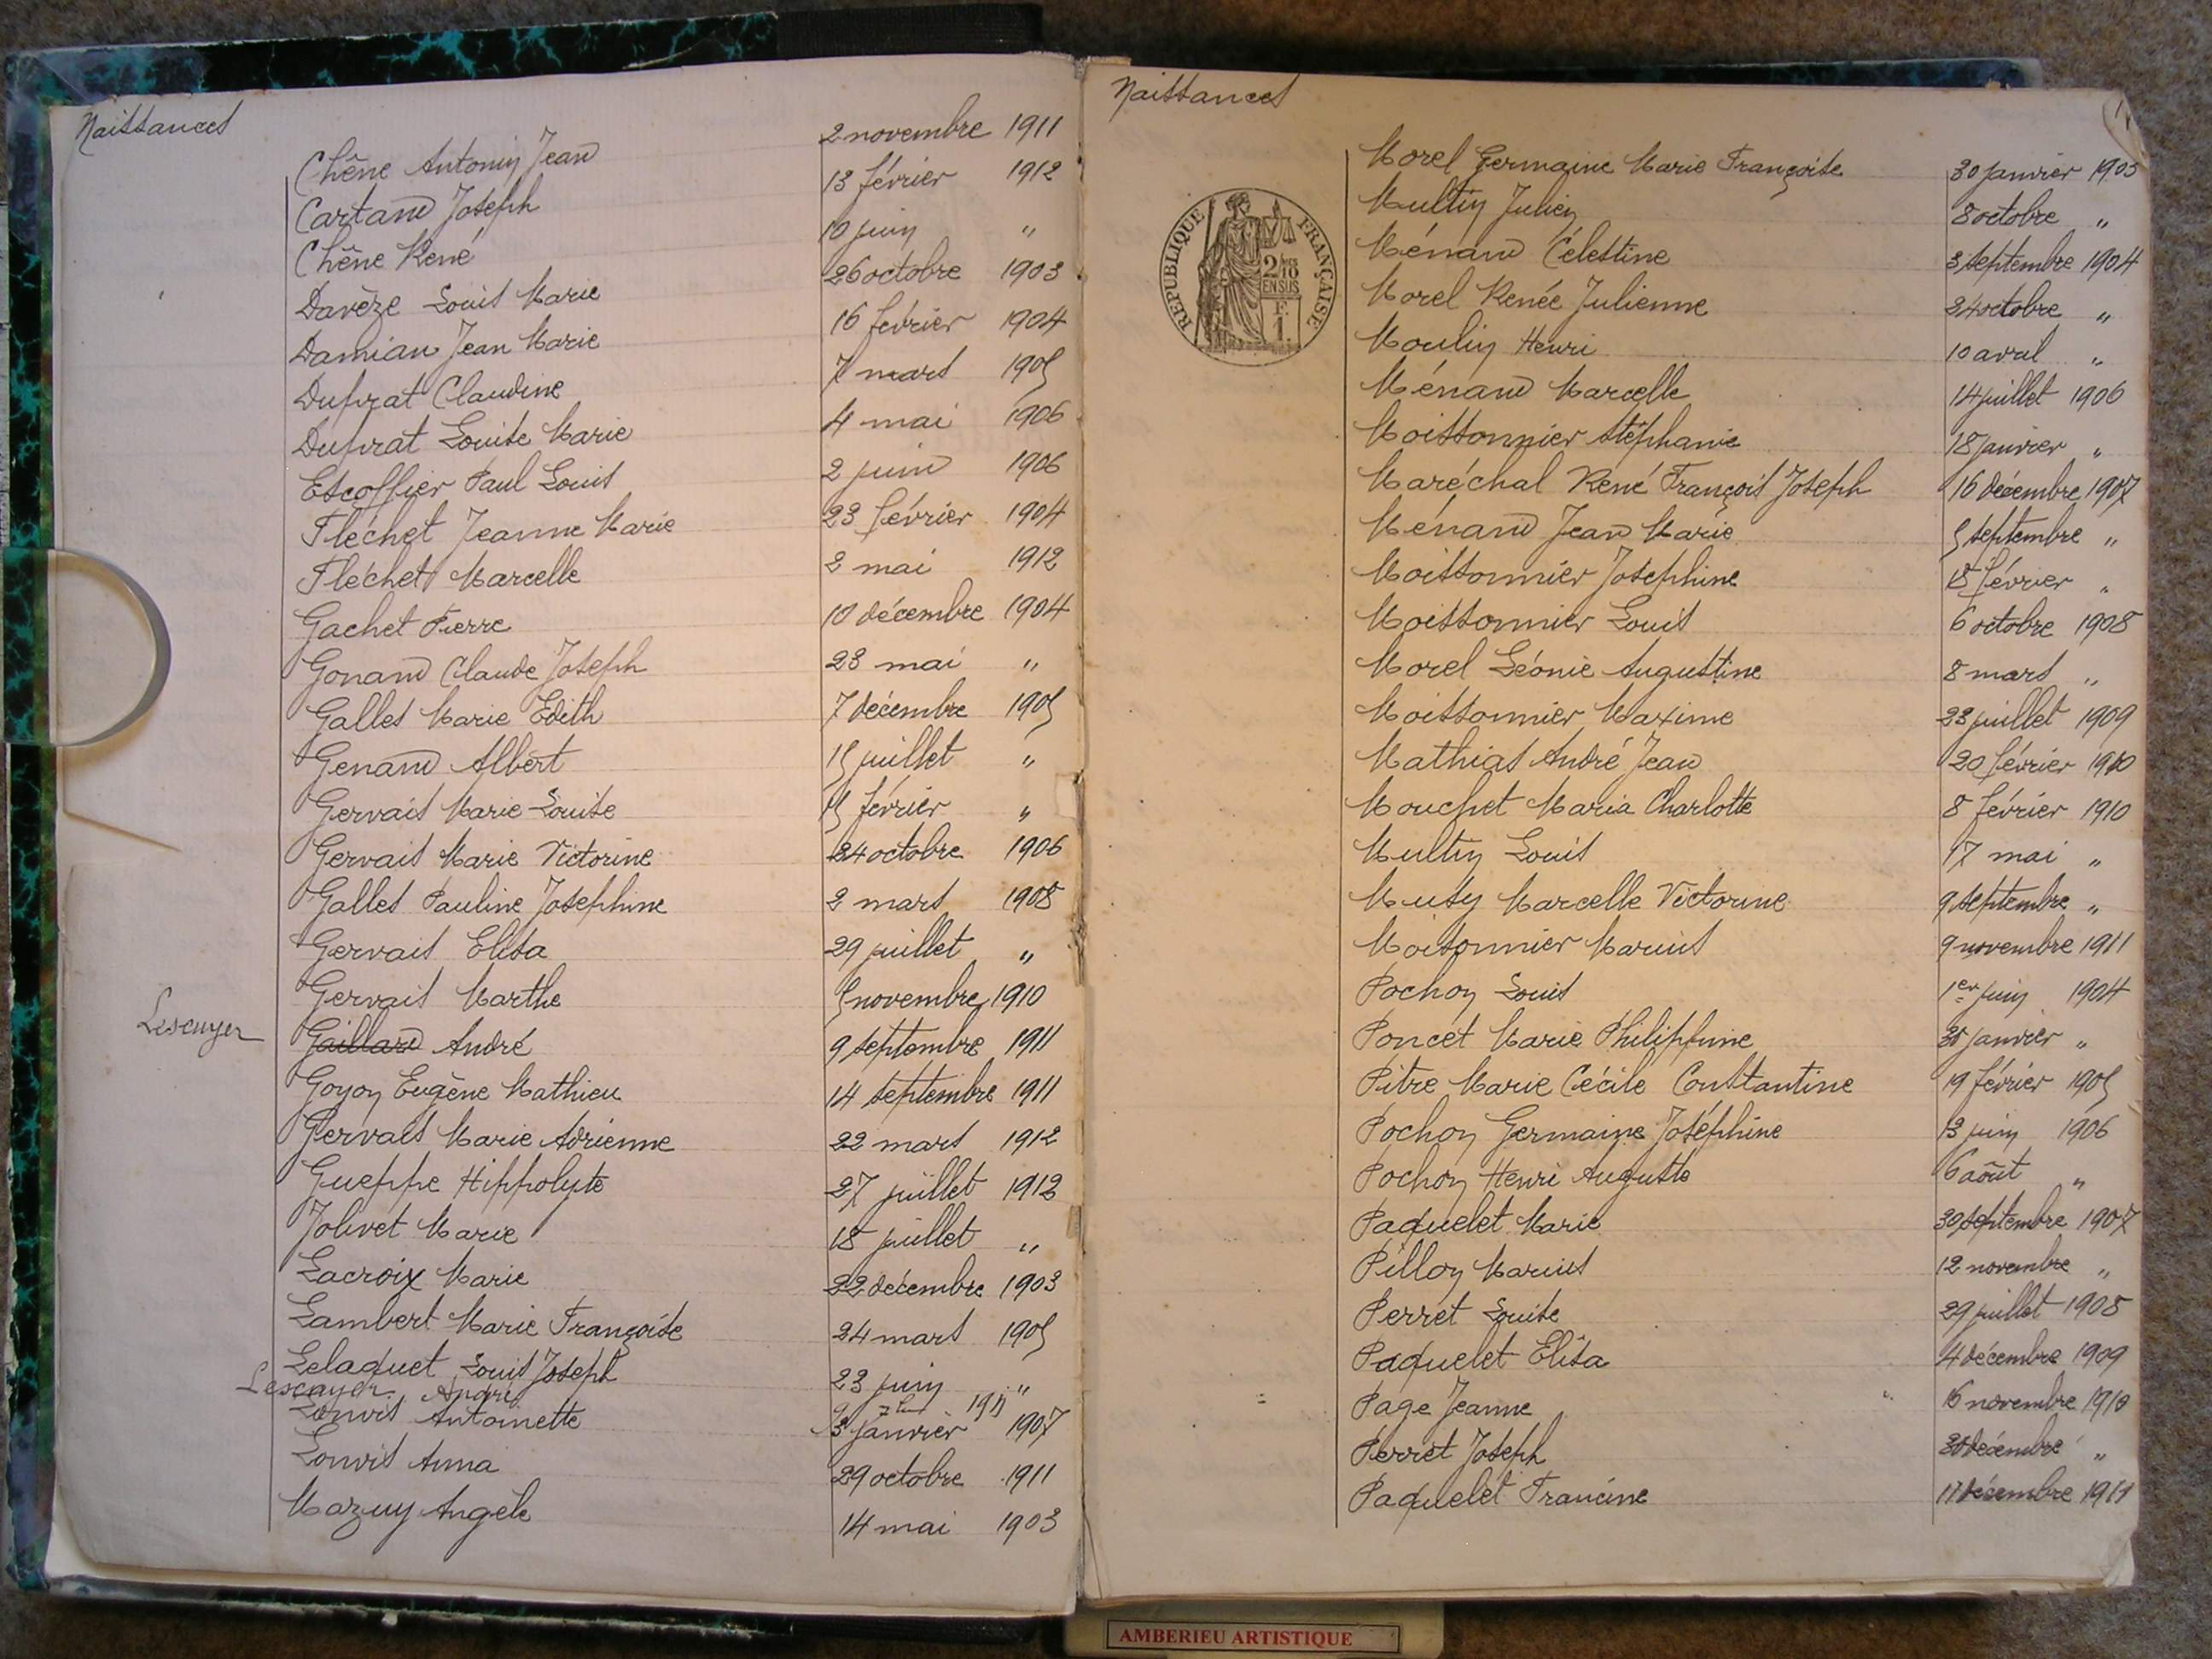 Naissances
Chêne Antonin Jean 2 novembre 1911
Cartand Joseph 13 février 1912
Chêne René 10 juin "
Davèze Louis Marie 26 octobre 1903
Damian Jean Marie 16 février 1904
Duprat Claudine 7 mars 1905
Duprat Louise Marie 4 mai 1906
Escoffier Paul Louis 2 juin 1906
Fléchet Jeanne Marie 23 février 1904
Fléchet Marcelle 2 mai 1912
Gachet Pierre 10 décembre 1904
Gonand Claude Joseph 23 mai "
Galles Marie Edith 7 décembre 1905
Genand Albert 15 juillet "
Gervais Marie-Louise 15 février "
Gervais Marie Victorine 24 octobre 1906
Galles Pauline Josephine 2 mars 1908
Gervais Elisa 29 juillet "
Gervais Marthe 5 novembre 1910
Lescuyer Gaillard André 9 septembre 1911
Goyon Eugène Mathieu 14 septembre 1911
Gervais Marie Adrienne 22 mars 1912
Gueppe Hippolyte 27 juillet 1912
Jolivet Marie 18 juillet "
Lacroix Marie 22 décembre 1903
Lambert Marie Françoise 24 mars 1905
Lelaquet Louis Joseph 23 juin "
Lescuyer André 9 7bre 1911
Lonvis Antoinette 3 janvier 1907
Lonvis Anna 29 octobre 1911
Mazuy Angèle 14 mai 1903
Naissances
RÉPUBLIQUE FRANÇAISE
2/10
EN SUS
F.
1.
Morel Germaine Marie Françoise 30 janvier 1903
Multin Julien 8 octobre "
Ménand Célestine 3 septembre 1904
Morel Renée Julienne 24 octobre "
Moulin Henri 10 avril "
Ménand Marcelle 14 juillet 1906
Moissonnier Stéphanie 18 janvier "
Maréchal René François Joseph 16 décembre 1907
Ménand Jean Marie 5 septembre "
Moissonnier Josephine 18 février "
Moissonnier Louis 6 octobre 1908
Morel Léonie Augustine 8 mars "
Moissonnier Maxime 23 juillet 1909
Mathias André Jean 20 février 1910
Mouchet Maria Charlotte 8 février 1910
Multin Louis 17 mai "
Musy Marcelle Victorine 9 septembre "
Moisonnier Marius 9 novembre 1911
Pochon Louis 1er juin 1904
Poncet Marie Philippine 30 janvier "
Pitre Marie Cécile Constantine 19 février 1905
Pochon Germaine Joséphine 13 juin 1906
Pochon Henri Auguste 6 août "
Paquelet Marie 30 septembre 1907
Pillon Marius 12 novembre "
Perret Louise 29 juillet 1908
Paquelet Elisa 4 décembre 1909
Page Jeanne 16 novembre 1910
Perret Joseph 30 décembre "
Paquelet Francine 17 décembre 1911
AMBERIEU ARTISTIQUE